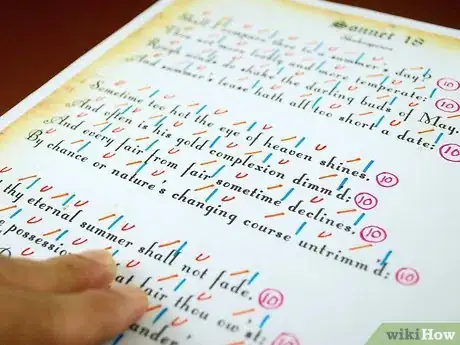 Sonnet 18
Shakespeare
Shall I compare thee to a summer's day? 10
Thou art more lovely and more temperate: 10
Rough winds do shake the darling buds of May,
And summer's lease hath all too short a date: 10
Sometime too hot the eye of heaven shines, 10
And often is his gold complexion dimm'd; 10
And every fair from fair sometime declines, 10
By chance or nature's changing course untrimm'd; 10
thy eternal summer shall not fade, 10
possession at fair thou ow'st; 10
wikiHow